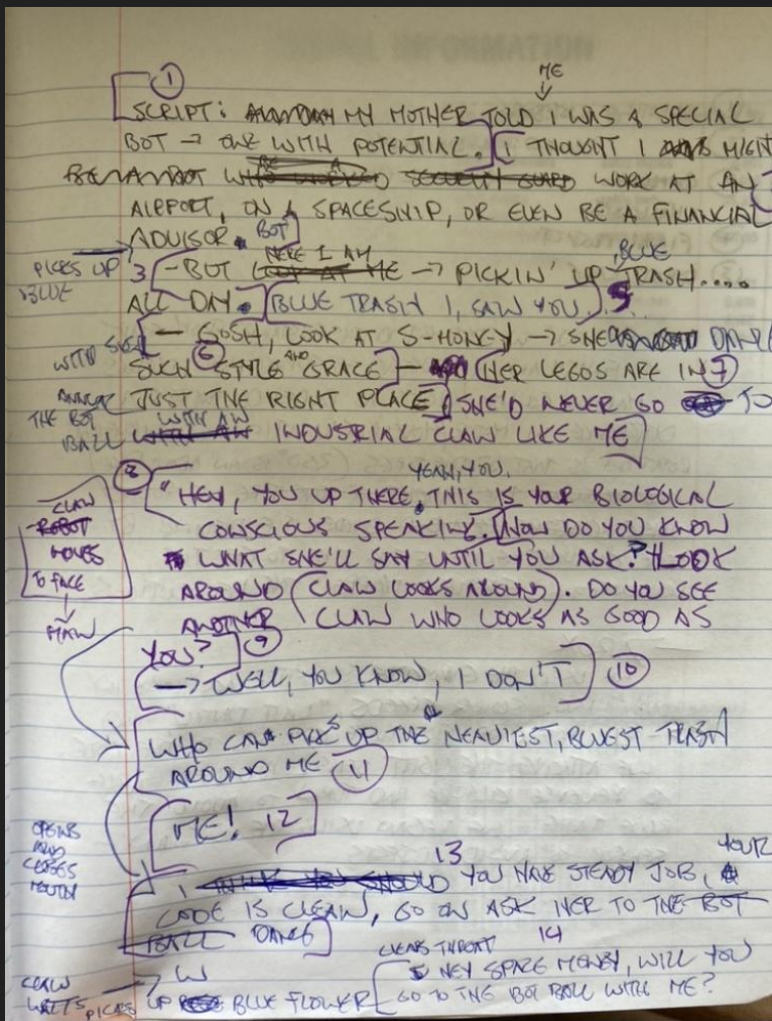 1
ME
SCRIPT: MY MOTHER TOLD I WAS A SPECIAL
BOT → ONE WITH POTENTIAL. I THOUGHT I MIGHT
BE A
WORK AT AN
AIRPORT, ON A SPACESHIP, OR EVEN BE A FINANCIAL
ADVISOR. BOT
PICKS UP
BLUE
3 - BUT HERE I AM → PICKIN' UP BLUE TRASH....
ALL DAY. BLUE TRASH I, SAW YOU. 5
- GOSH, LOOK AT S-HONEY → SHE
WITH SUCH 6 STYLE AND GRACE - HER LEGOS ARE IN 7
ANNUAL
THE BOT
BALL
JUST THE RIGHT PLACE. SHE'D NEVER GO TO
WITH AN
INDUSTRIAL CLAW LIKE ME
8
YEAH, YOU.
"HEY, YOU UP THERE. THIS IS YOUR BIOLOGICAL
CONSCIOUS SPEAKING. HOW DO YOU KNOW
WHAT SHE'LL SAY UNTIL YOU ASK? LOOK
AROUND (CLAW LOOKS AROUND). DO YOU SEE
ANOTHER CLAW WHO LOOKS AS GOOD AS
YOU? 9
CLAW
ROBOT
MOVES
TO FACE
→ WELL, YOU KNOW, I DON'T 10
WHO CAN PICK UP THE HEAVIEST, BLUEST TRASH
AROUND ME 11
ME! 12
OPENS
AND
CLOSES
MOUTH
13
I YOU HAVE STEADY JOB, YOUR
CODE IS CLEAN, GO ON ASK HER TO THE BOT
BALL DANCE
14
CLAW
WAITS
PICKS UP BLUE FLOWER
CLEARS THROAT
HEY SPACE HONEY, WILL YOU
GO TO THE BOT BALL WITH ME?